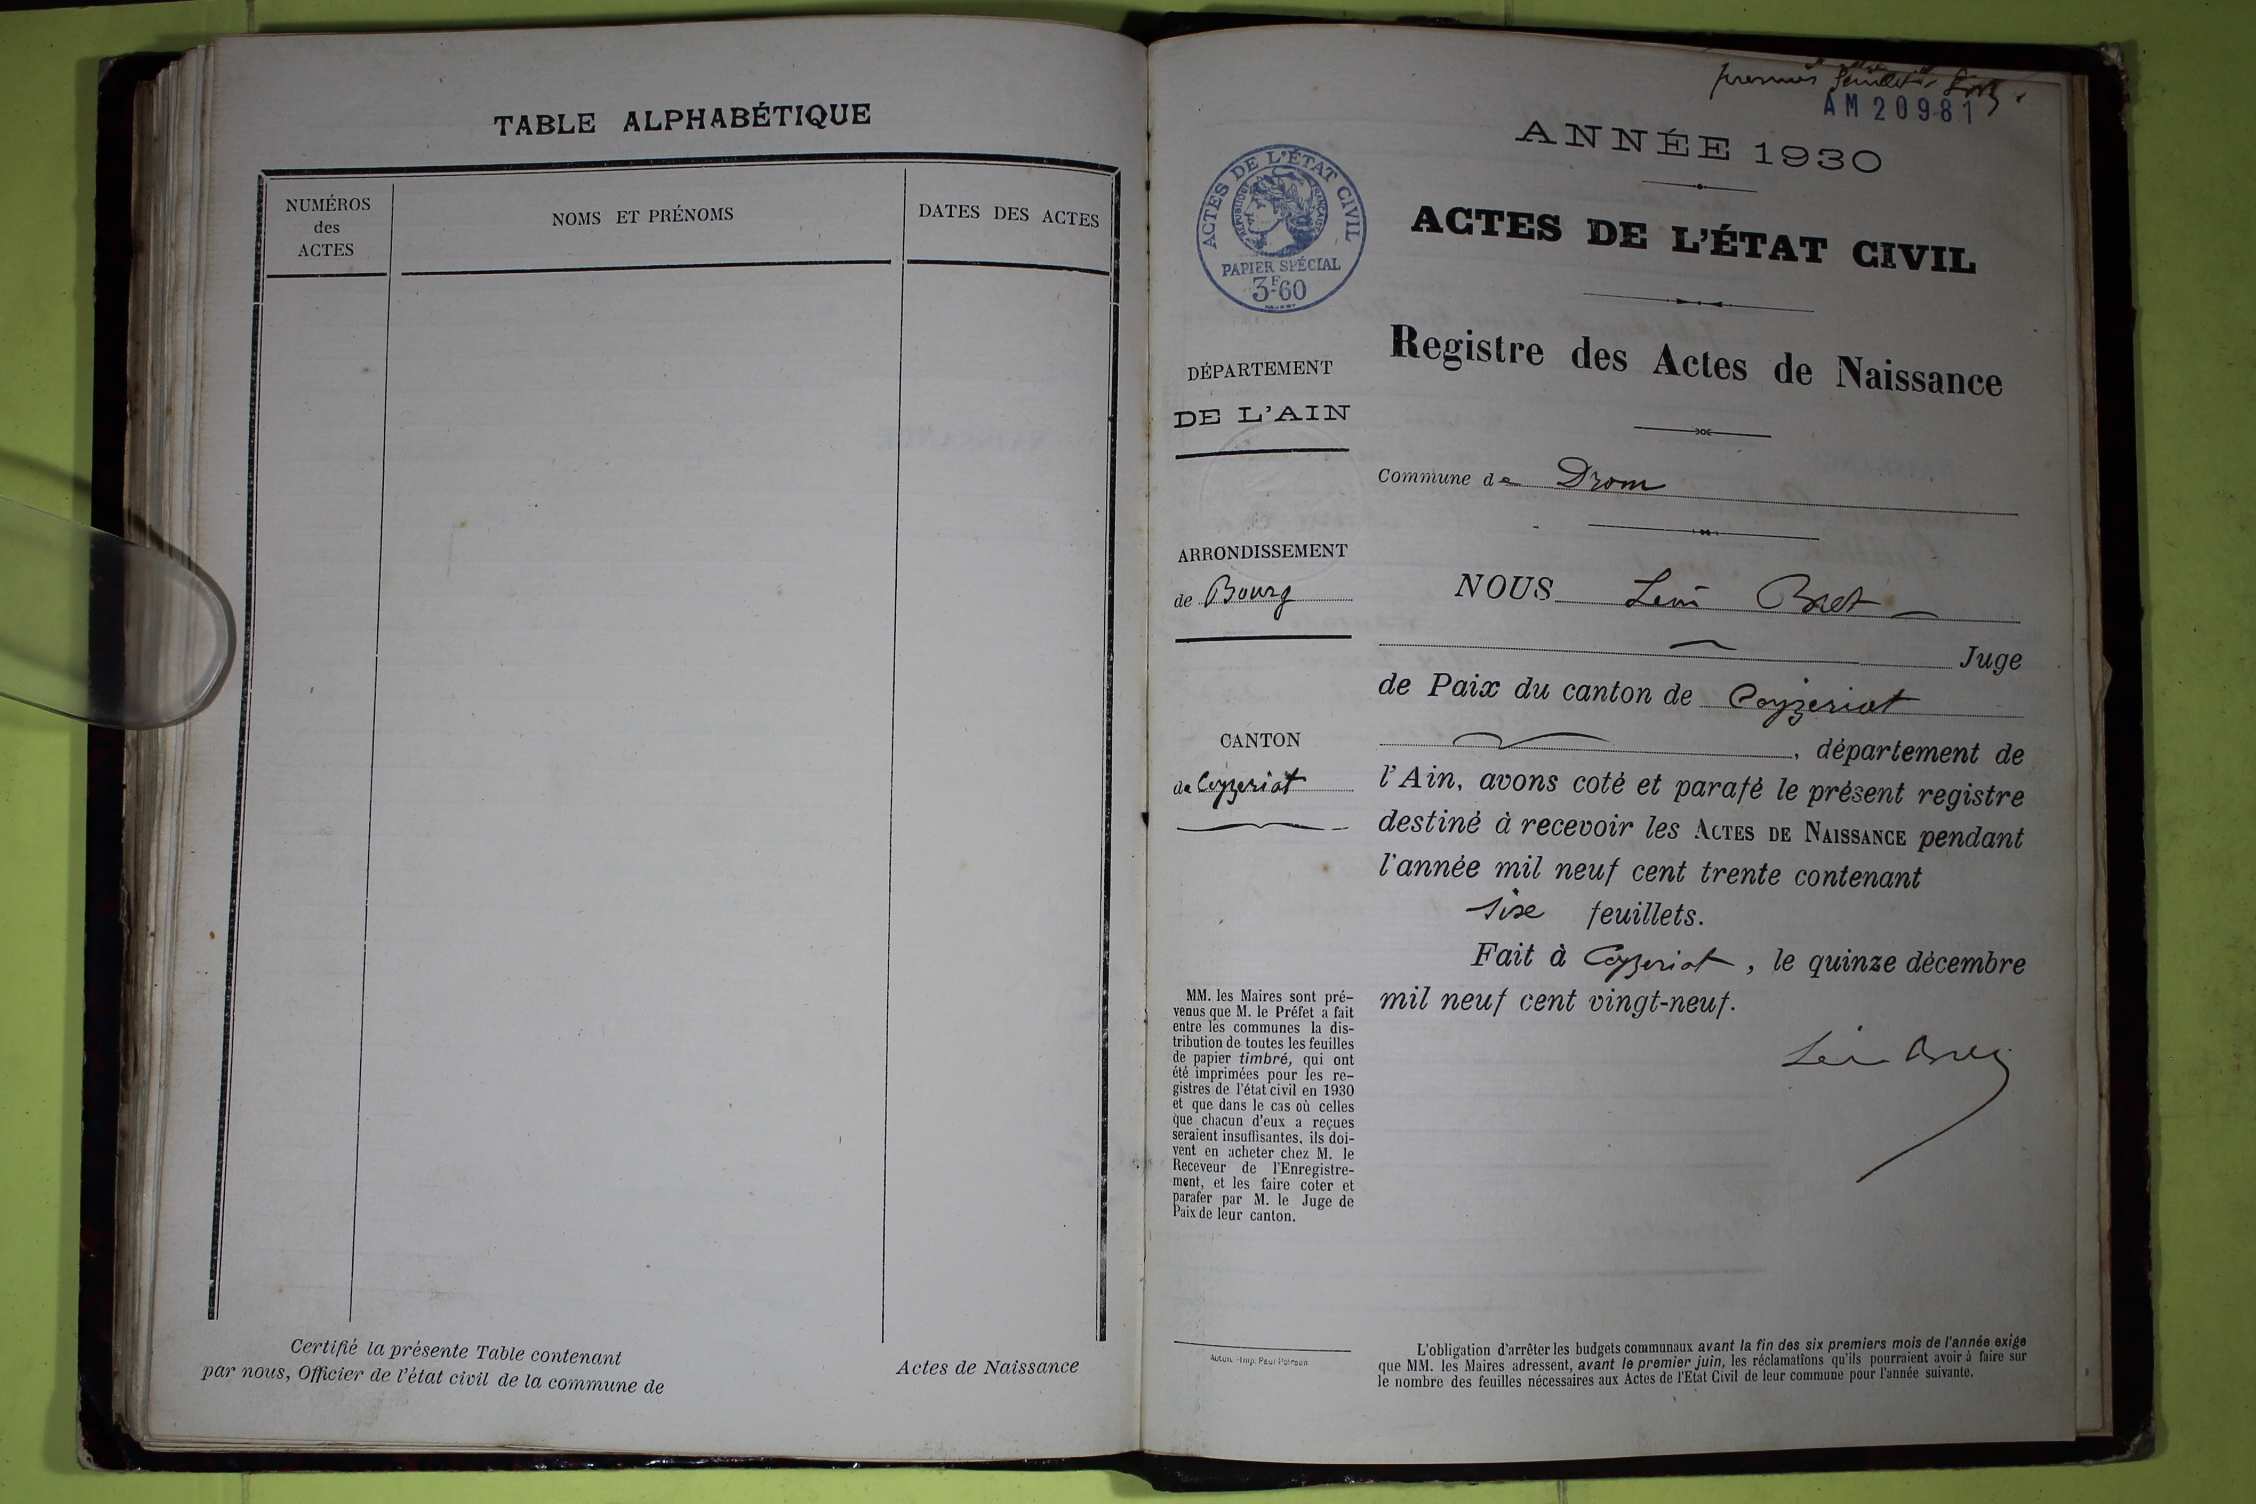 TABLE ALPHABÉTIQUE
NUMÉROS
des
ACTES
NOMS ET PRÉNOMS
DATES DES ACTES
Certifié la présente Table contenant
Actes de Naissance
par nous, Officier de l'état civil de la commune de
premier feuillet
AM 20981
ANNÉE 1930
ACTES DE L'ÉTAT CIVIL
RÉPUBLIQUE FRANÇAISE
PAPIER SPÉCIAL
3F60
ACTES DE L'ÉTAT CIVIL
Registre des Actes de Naissance
DÉPARTEMENT
DE L'AIN
Commune de Drom
ARRONDISSEMENT
de Bourg
CANTON
de Ceyzeriat
MM. les Maires sont pré-
venus que M. le Préfet a fait
entre les communes la dis-
tribution de toutes les feuilles
de papier timbré, qui ont
été imprimées pour les re-
gistres de l'état civil en 1930
et que dans le cas où celles
que chacun d'eux a reçues
seraient insuffisantes, ils doi-
vent en acheter chez M. le
Receveur de l'Enregistre-
ment, et les faire coter et
parafer par M. le Juge de
Paix de leur canton.
NOUS Léon Bret
Juge
de Paix du canton de Ceyzeriat
, département de
l'Ain, avons coté et parafé le présent registre
destiné à recevoir les ACTES DE NAISSANCE pendant
l'année mil neuf cent trente contenant
six feuillets.
Fait à Ceyzeriat, le quinze décembre
mil neuf cent vingt-neuf.
Léon Bret
Autun. - Imp. Paul
L'obligation d'arrêter les budgets communaux avant la fin des six premiers mois de l'année exige
que MM. les Maires adressent, avant le premier juin, les réclamations qu'ils pourraient avoir à faire sur
le nombre des feuilles nécessaires aux Actes de l'Etat Civil de leur commune pour l'année suivante.